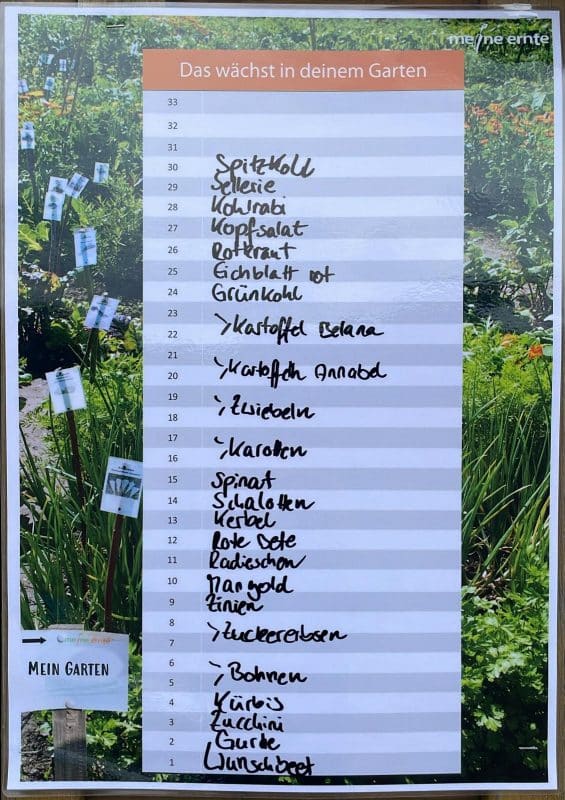 meine ernte
Das wächst in deinem Garten
33
32
31
30 Spitzkohl
29 Sellerie
28 Kohlrabi
27 Kopfsalat
26 Rotkraut
25 Eichblatt rot
24 Grünkohl
23
>Kartoffel Belana
22
21
>Kartoffeln Annabel
20
19
>Zwiebeln
18
17
>Karotten
16
15 Spinat
14 Schalotten
13 Kerbel
12 Rote Bete
11 Radieschen
10 Mangold
9 Zinien
8
>Zuckererbsen
7
6
>Bohnen
5
4 Kürbis
3 Zucchini
2 Gurke
1 Wunschbeet
meine ernte
MEIN GARTEN